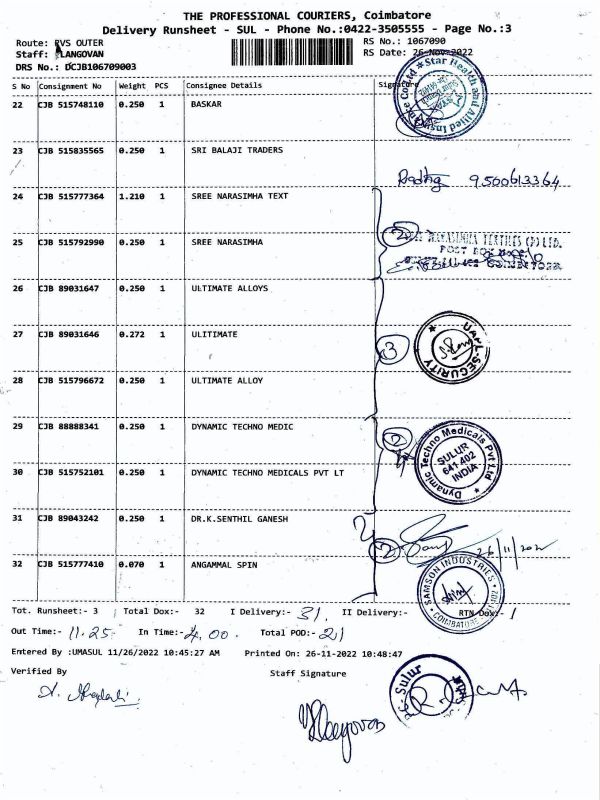 THE PROFESSIONAL COURIERS, Coimbatore
Delivery Runsheet - SUL - Phone No.:0422-3505555 - Page No.:3
Route: PVS OUTER RS No.: 1067090
Staff: LANGOVAN RS Date: 26-Nov-2022
DRS No.: DCJB106709003
S No Consignment No Weight PCS Consignee Details Signature
22 CJB 515748110 0.250 1 BASKAR
Star Health and Allied Insurance Co Ltd
23 CJB 515835565 0.250 1 SRI BALAJI TRADERS
9500613364
24 CJB 515777364 1.210 1 SREE NARASIMHA TEXT
25 CJB 515792990 0.250 1 SREE NARASIMHA
2 NARASIMHA TEXTILES (P) LTD.
POST BOX
COIMBATORE
26 CJB 89031647 0.250 1 ULTIMATE ALLOYS
27 CJB 89031646 0.272 1 ULITIMATE
3 UAPL-SECURITY
28 CJB 515796672 0.250 1 ULTIMATE ALLOY
29 CJB 88888341 0.250 1 DYNAMIC TECHNO MEDIC
2 Dynamic Techno Medicals Pvt Ltd
SULUR
641 402
INDIA
30 CJB 515752101 0.250 1 DYNAMIC TECHNO MEDICALS PVT LT
31 CJB 89043242 0.250 1 DR.K.SENTHIL GANESH
2 26/11/2022
32 CJB 515777410 0.070 1 ANGAMMAL SPIN
SAMSON INDUSTRIES
COIMBATORE
Tot. Runsheet:- 3 Total Dox:- 32 I Delivery:- 31 II Delivery:- RTN Dox:- 1
Out Time:- 11.25 In Time:- 4.00 Total POD:- 21
Entered By :UMASUL 11/26/2022 10:45:27 AM Printed On: 26-11-2022 10:48:47
Verified By Staff Signature
Sulur